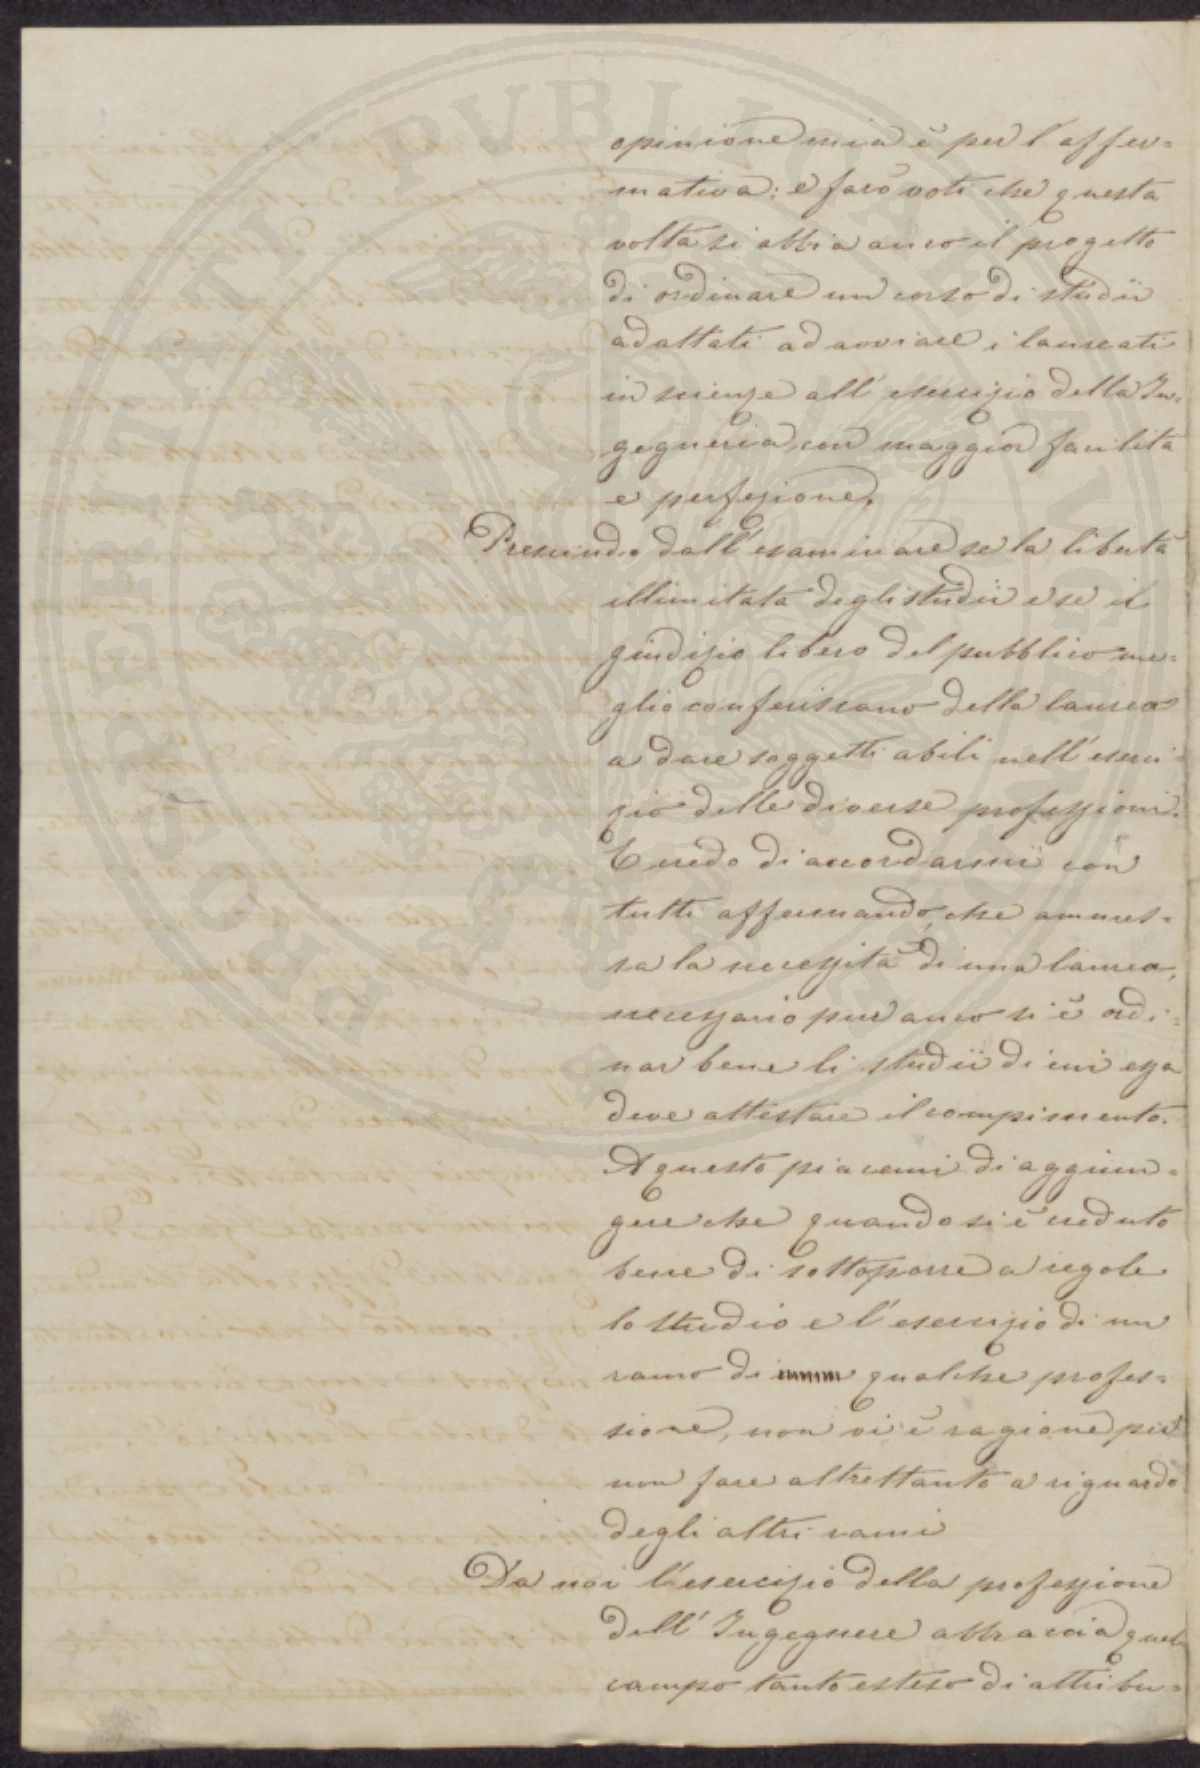 opinione mia è per l'affer=
mativa: e farò voti che questa
volta si abbia anco il progetto
di ordinare un corso di studii
adattati ad avviare i laureati
in scienze all'esercizio della In=
gegneria con maggior facilità
e perfezione.
Prescindo dall'esaminare se la libertà
illimitata degli studii e se il
giudizio libero del pubblico me=
glio conferiscano della laurea
a dare soggetti abili nell'eserci=
zio delle diverse professioni.
E credo di accordarmi con
tutti affermando, che ammes=
sa la necessità di una laurea,
necessario pur anco si è ordi=
nar bene li studii di cui essa
deve attestare il compimento.
A questo piacemi di aggiun=
gere che quando si è creduto
bene di sottoporre a regole
lo studio e l'esercizio di un
ramo di qualche profes=
sione, non vi è ragione per
non fare altrettanto a riguardo
degli altri rami
Da noi l'esercizio della professione
dell'Ingegnere abbraccia quel
campo tanto esteso di attribu=
PROSPERITATI PVBLICAE AVGENDAE